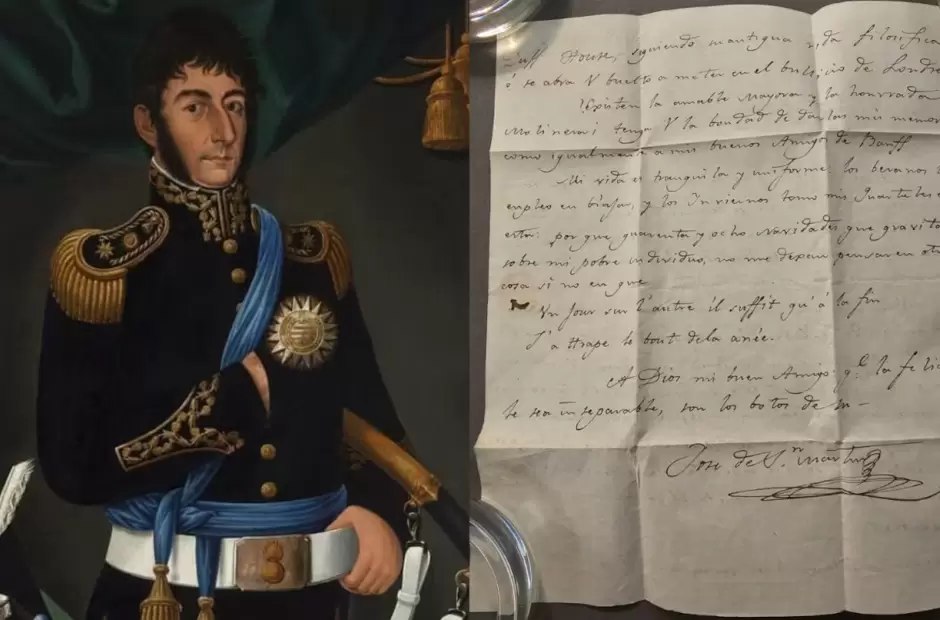 uff House, siguiendo mantigua vida filosofica
ó se abra V buelto a meter en el bullicio de Londre
Existen la amable Mayora y la honrrada
Molinera; tenga V la bondad de darlas mis memor
como igualmente a mis buenos Amigos de Banff
Mi vida es tranquila y uniforme los beranos l
empleo en biajar, y los Inviernos tomo mis Quarteles
esta: por que quarenta y ocho Navidades que gravita
sobre mi pobre individuo, no me dexan pensar en otr
cosa si no en que
Un Jour sur l'autre il suffit qu'á la fin
J'attrape le bout dela anée.
A Dios mi buen Amigo: q.e la felic
le sea inseparable, son los botos de
José de S.n Martin
3